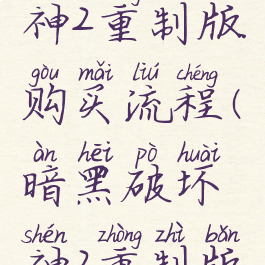 神2重制版
gòu mǎi liú chéng
购买流程(
àn hēi pò huài
暗黑破坏
shén zhòng zhì bǎn
神2重制版